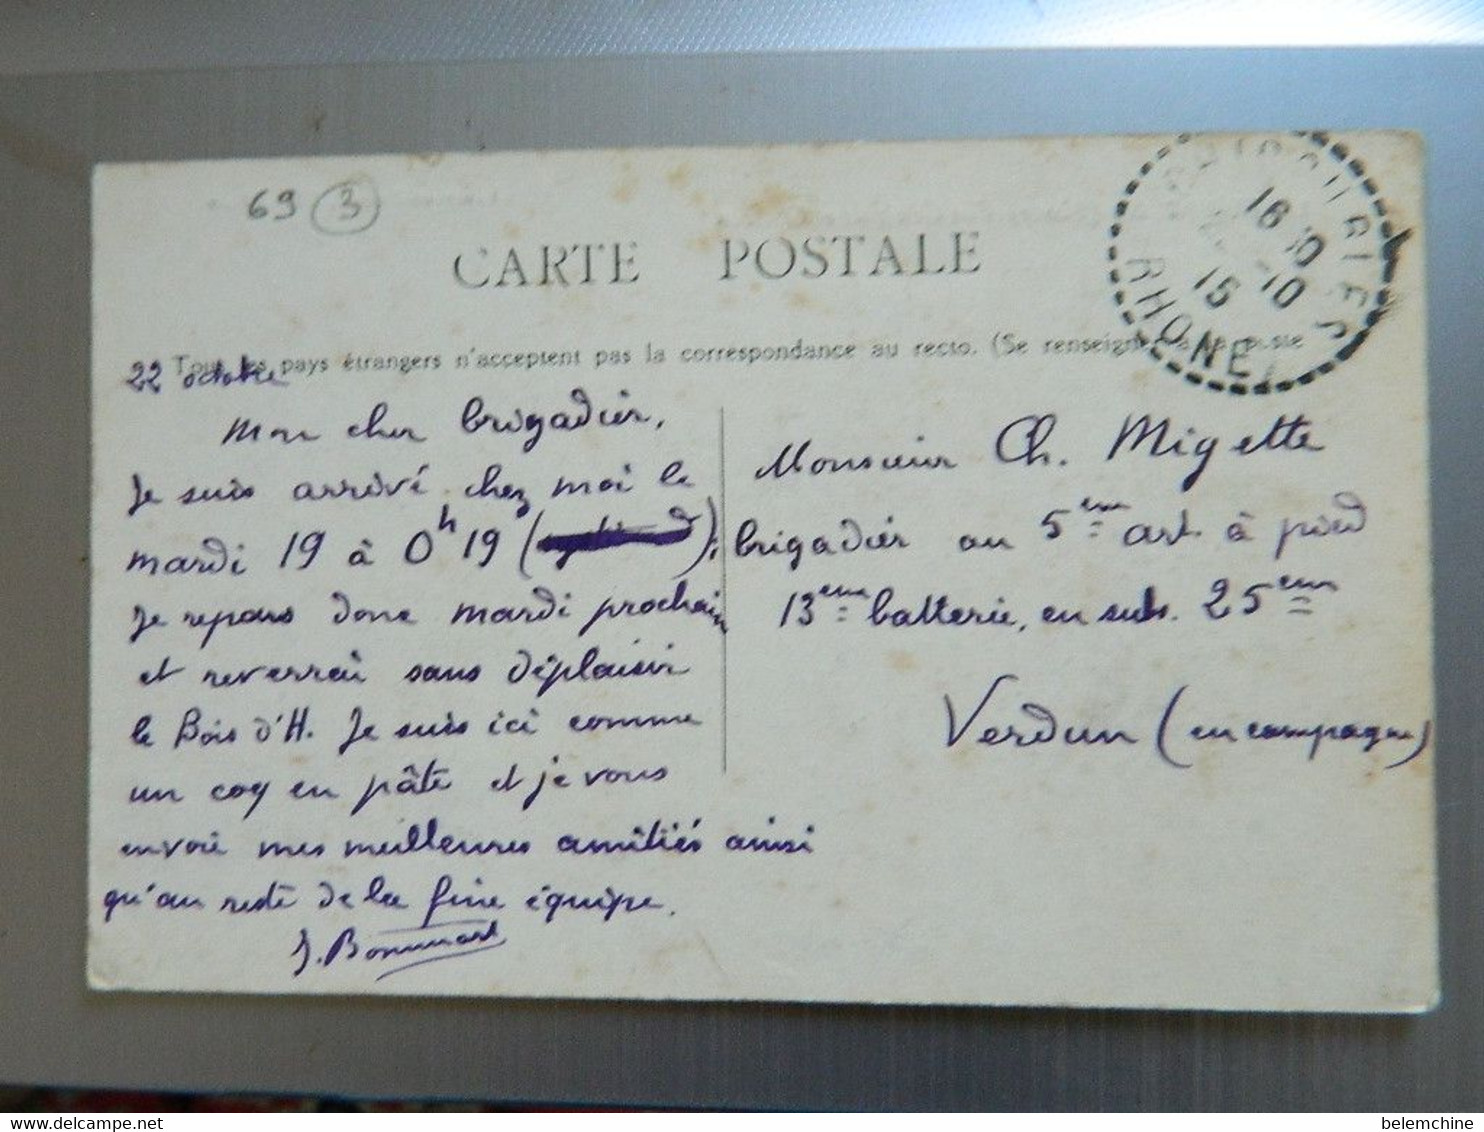 69 3
CARTE POSTALE
16 10
15 10
RHONE
Tous les pays étrangers n'acceptent pas la correspondance au recto. (Se renseigner à la poste
22 octobre
Mon cher brigadier,
Je suis arrivé chez moi le
mardi 19 à 0h19 ( );
Je repars donc mardi prochain
et reverrai sans déplaisir
le Bois d'H. Je suis ici comme
un coq en pâte et je vous
envoie mes meilleures amitiés ainsi
qu'au reste de la fine équipe.
J. Bonnmart
Monsieur Ch. Migette
brigadier au 5eme art. à pied
13eme batterie, en subs. 25eme
Verdun (en campagne)
delcampe.net
belemchine